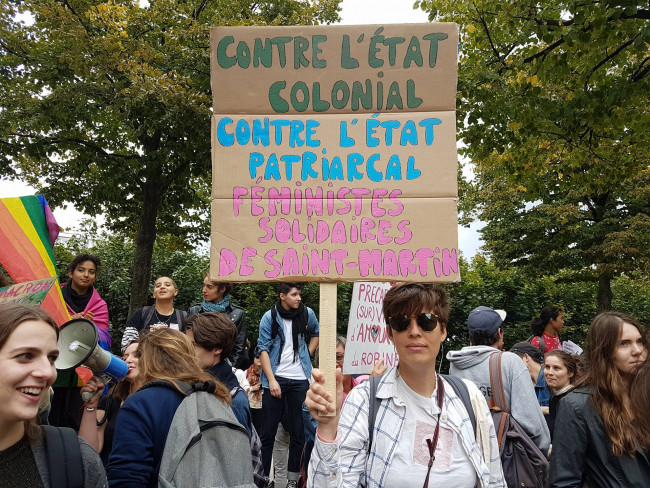 CONTRE L'ÉTAT
COLONIAL
CONTRE L'ÉTAT
PATRIARCAL
FÉMINISTES
SOLIDAIRES
DE SAINT-MARTIN
PRÉCA
(SUR)V
D'AMOUR
DU R
ROBIN
MACRON